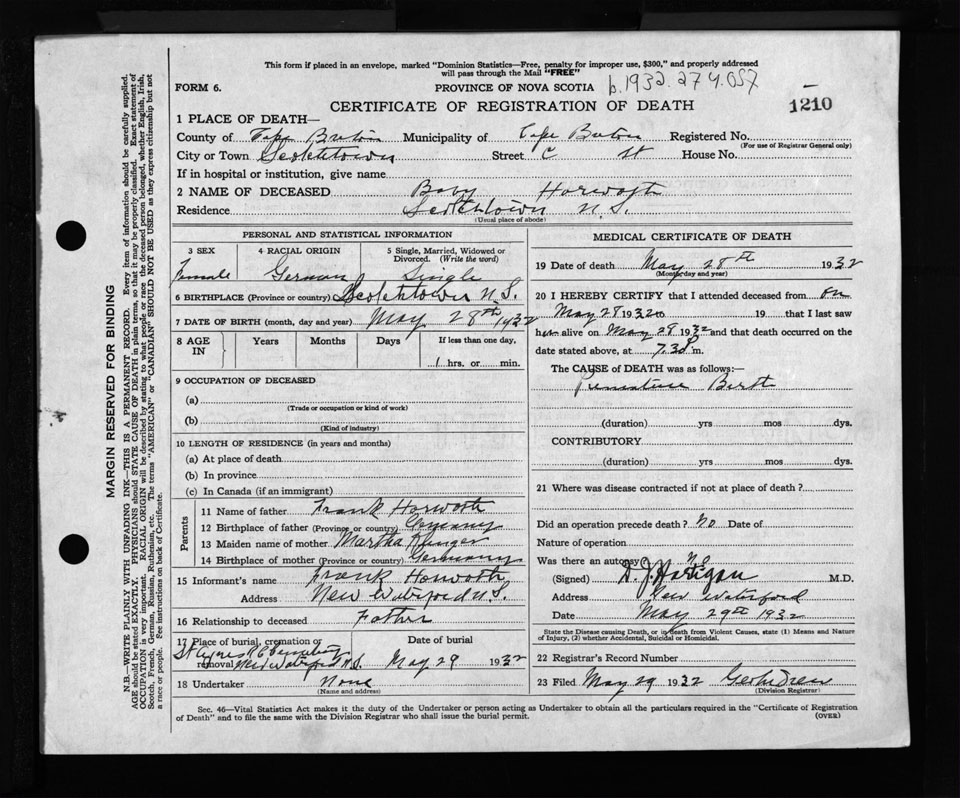 This form if placed in an envelope, marked "Dominion Statistics—Free, penalty for improper use, $300," and properly addressed
will pass through the Mail "FREE"
FORM 6.
PROVINCE OF NOVA SCOTIA
b.1932.27 4.057
CERTIFICATE OF REGISTRATION OF DEATH
1210
1 PLACE OF DEATH—
County of Cape Breton Municipality of Cape Breton Registered No.
(For use of Registrar General only)
City or Town Scotchtown Street C St House No.
If in hospital or institution, give name
2 NAME OF DECEASED Baby Horwath
Residence Scotchtown N.S.
(Usual place of abode)
PERSONAL AND STATISTICAL INFORMATION
3 SEX 4 RACIAL ORIGIN 5 Single, Married, Widowed or
Divorced. (Write the word)
Female German Single
6 BIRTHPLACE (Province or country) Scotchtown N.S.
7 DATE OF BIRTH (month, day and year) May 28th 1932
8 AGE IN Years Months Days If less than one day,
1 hrs. or min.
9 OCCUPATION OF DECEASED
(a)
(Trade or occupation or kind of work)
(b)
(Kind of industry)
10 LENGTH OF RESIDENCE (in years and months)
(a) At place of death
(b) In province
(c) In Canada (if an immigrant)
Parents
11 Name of father Frank Horwath
12 Birthplace of father (Province or country) Germany
13 Maiden name of mother Martha
14 Birthplace of mother (Province or country) Germany
15 Informant's name Frank Horwath
Address New Waterford N.S.
16 Relationship to deceased Father
17 Place of burial, cremation or
removal St Agnes R C Cemetery New Waterford N.S.
Date of burial
May 29 1932
18 Undertaker None
(Name and address)
MEDICAL CERTIFICATE OF DEATH
19 Date of death May 28th 1932
(Month, day and year)
20 I HEREBY CERTIFY that I attended deceased from on
May 28 1932 to 19 that I last saw
her alive on May 28 1932 and that death occurred on
date stated above, at 7.30 P m.
The CAUSE of DEATH was as follows:—
Premature Birth
(duration) yrs mos dys.
CONTRIBUTORY
(duration) yrs mos dys.
21 Where was disease contracted if not at place of death?
Did an operation precede death? No Date of
Nature of operation
Was there an autopsy No
(Signed) D. J. Hartigan M.D.
Address New Waterford
Date May 29th 1932
State the Disease causing Death, or in death from Violent Causes, state (1) Means and Nature
of Injury, (2) whether Accidental, Suicidal or Homicidal.
22 Registrar's Record Number
23 Filed May 29 1932
(Division Registrar)
Sec. 46—Vital Statistics Act makes it the duty of the Undertaker or person acting as Undertaker to obtain all the particulars required in the "Certificate of Registration
of Death" and to file the same with the Division Registrar who shall issue the burial permit.
(OVER)
MARGIN RESERVED FOR BINDING
N.B.—WRITE PLAINLY WITH UNFADING INK—THIS IS A PERMANENT RECORD. Every item of information should be carefully supplied.
AGE should be stated EXACTLY. PHYSICIANS should STATE CAUSE OF DEATH in plain terms, so that it may be properly classified. Exact statement of
OCCUPATION is very important. RACIAL ORIGIN will be described by stating to what people or race the deceased person belonged, whether English, Irish,
Scotch, French, German, Russian, Ruthenian, etc. The terms "AMERICAN" or "CANADIAN" SHOULD NOT BE USED as they express citizenship but not
a race or people. See instructions on back of Certificate.